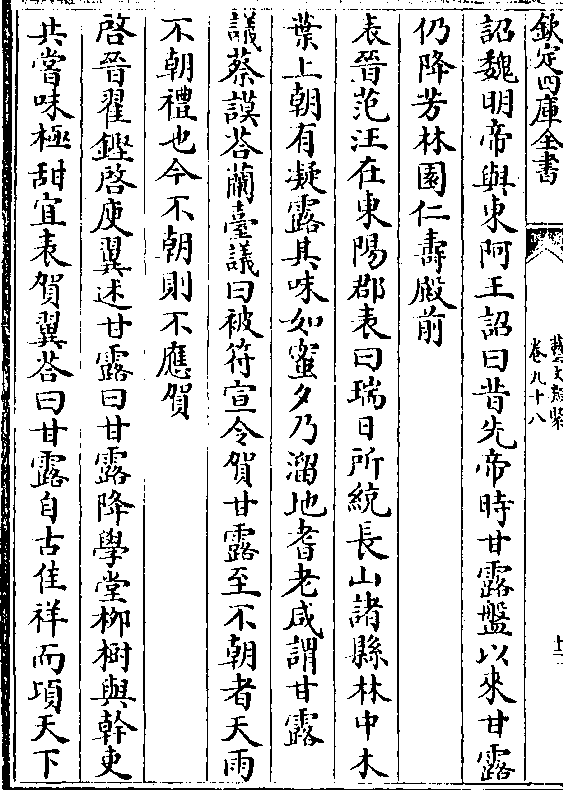 欽定四庫全書
藝文類聚
卷九十八
詔魏明帝與東阿王詔曰昔先帝時甘露盤以來甘露
仍降芳林園仁壽殿前
表晉范汪在東陽郡表曰瑞日所統長山諸縣林中木
葉上朝有凝露其味如蜜夕乃溜地耆老咸謂甘露
議蔡謨荅蘭臺議曰被符宣令賀甘露至不朝者天雨
不朝禮也今不朝則不應賀
啓晉翟鏗啓庾翼述甘露曰甘露降學堂栁樹與幹吏
共嘗味極甜宜表賀翼荅曰甘露自古佳祥而項天下